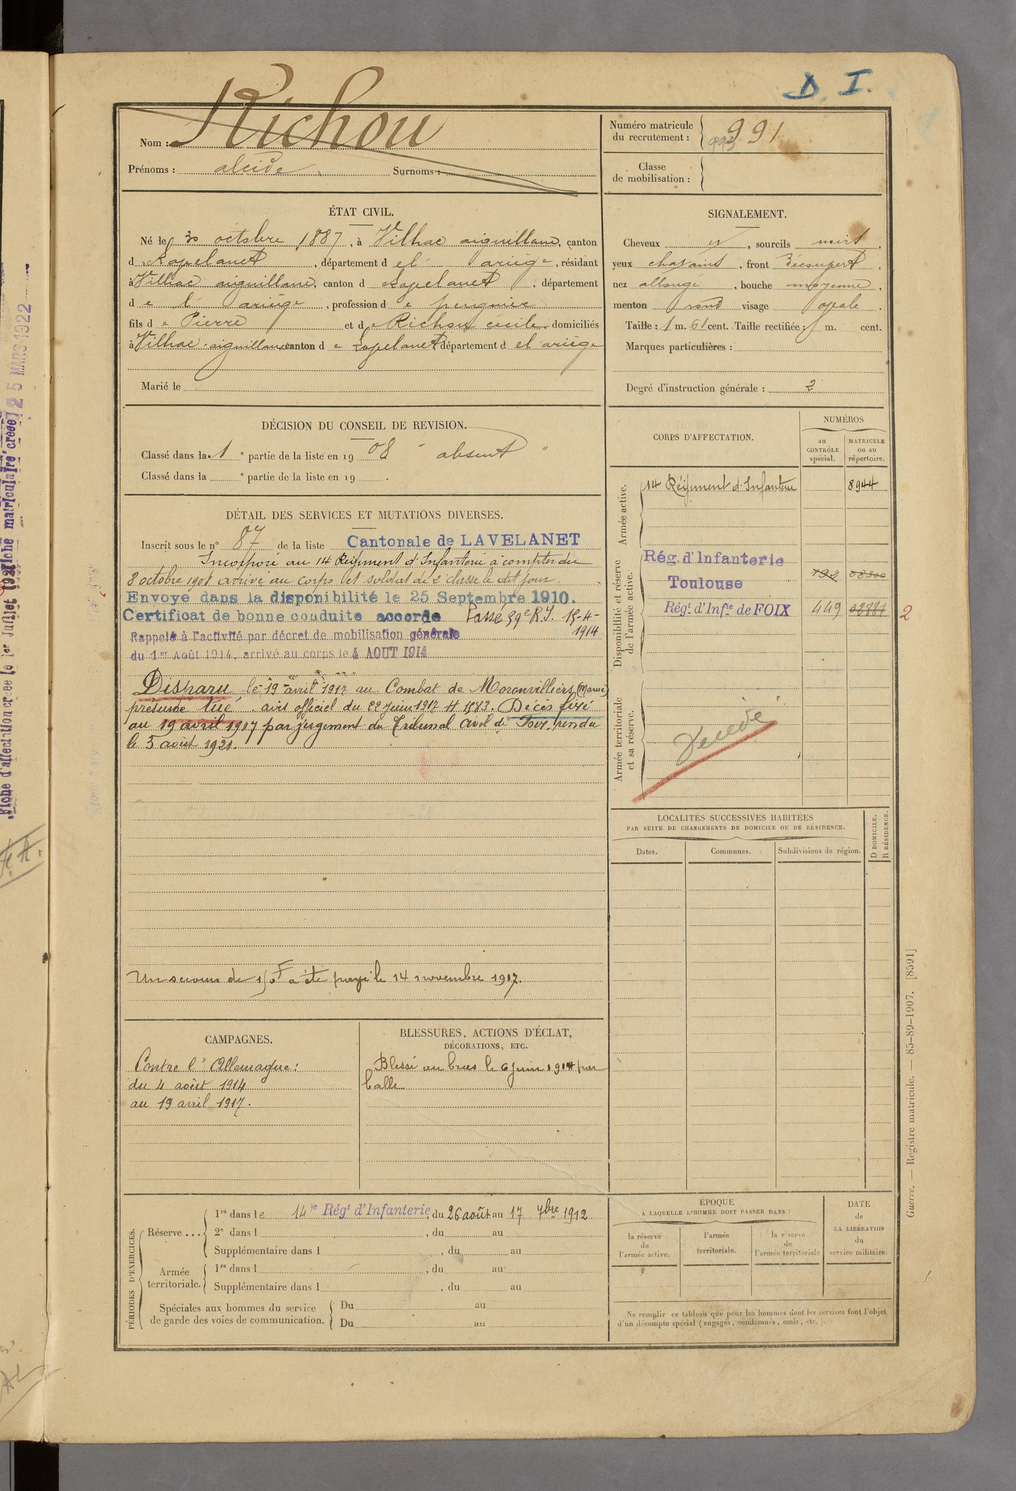 D. I.
Nom : Richou
Prénoms : alcide. Surnoms :
Numéro matricule du recrutement : 991
Classe de mobilisation :
ÉTAT CIVIL.
Né le 30 octobre 1887, à Vilhac aiguillanc, canton
d , département d e l' ariège, résidant
à Vilhac aiguillanc, canton d , département
d e l' ariège, profession d e peignier
fils d e Pierre et d e Richou cécile, domiciliés
à Vilhac-aiguillanc canton d e département d e l ariège
Marié le
SIGNALEMENT.
Cheveux , sourcils noirs,
yeux chatains, front découvert,
nez allongé, bouche moyenne,
menton rond visage ovale.
Taille : 1 m. 61 cent. Taille rectifiée : 1 m. cent.
Marques particulières :
Degré d'instruction générale : 2
DÉCISION DU CONSEIL DE REVISION.
Classé dans la 1e partie de la liste en 1908 " absent "
Classé dans la e partie de la liste en 19 .
DÉTAIL DES SERVICES ET MUTATIONS DIVERSES.
Inscrit sous le n° 87 de la liste Cantonale de LAVELANET
Incorporé au 14 Régiment d'Infanterie à compter du
8 octobre 1908 arrivé au corps et soldat de 2 classe le dit jour.
Envoyé dans la disponibilité le 25 Septembre 1910.
Certificat de bonne conduite accordé Passé 59e R.I. 15-4-1914
Rappelé à l'activité par décret de mobilisation générale
du 1er Août 1914, arrivé au corps le 4 AOUT 1914
Disparu le 19 avril 1917 au Combat de Moronvilliers (Marne)
présumé tué avis officiel du 22 Juin 1917 H 1883. Décès fixé
au 19 avril 1917 par jugement du Tribunal civil de Foix rendu
le 5 août 1921.
Un secours de 150F a été payé le 14 novembre 1917.
CORPS D'AFFECTATION.
NUMÉROS
au CONTRÔLE spécial.
MATRICULE ou au répertoire.
Armée active.
14 Régiment d'Infanterie 8944
Disponibilité et réserve de l'armée active.
Rég. d'Infanterie
Toulouse
Rég. d'Infie de FOIX 449 2
Armée territoriale et sa réserve.
Décédé
LOCALITÉS SUCCESSIVES HABITÉES
PAR SUITE DE CHANGEMENTS DE DOMICILE OU DE RÉSIDENCE.
Dates. Communes. Subdivisions de région. D DOMICILE. R RÉSIDENCE.
CAMPAGNES.
Contre l'Allemagne :
du 4 août 1914
au 19 avril 1917.
BLESSURES, ACTIONS D'ÉCLAT,
DÉCORATIONS, ETC.
Blessé au bras le 6 juin par
balle
PÉRIODES D'EXERCICES.
Réserve...
1re dans le 14e Régt d'Infanterie, du 26 août au 17 7bre 1912
2e dans l , du au
Supplémentaire dans l , du au
Armée territoriale.
1re dans l , du au
Supplémentaire dans l , du au
Spéciales aux hommes du service
de garde des voies de communication.
Du au
Du au
ÉPOQUE
À LAQUELLE L'HOMME DOIT PASSER DANS :
la réserve de l'armée active.
l'armée territoriale.
la réserve de l'armée territoriale
DATE de LA LIBÉRATION du service militaire.
Ne remplir ce tableau que pour les hommes dont les services font l'objet
d'un décompte spécial (engagés, condamnés, omis, etc.).
Guerre. — Registre matricule. — 85-89-1907. [8591]
25 MARS 1922